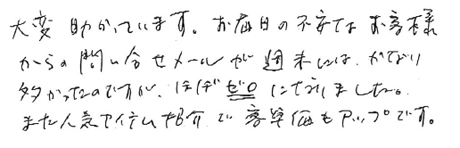 大変助かっています。お届日の不安でお客様
からの問い合せメールが週末には、かなり
多かったのですが、ほぼゼロになりました。
また人気アイテム紹介で客単価もアップです。